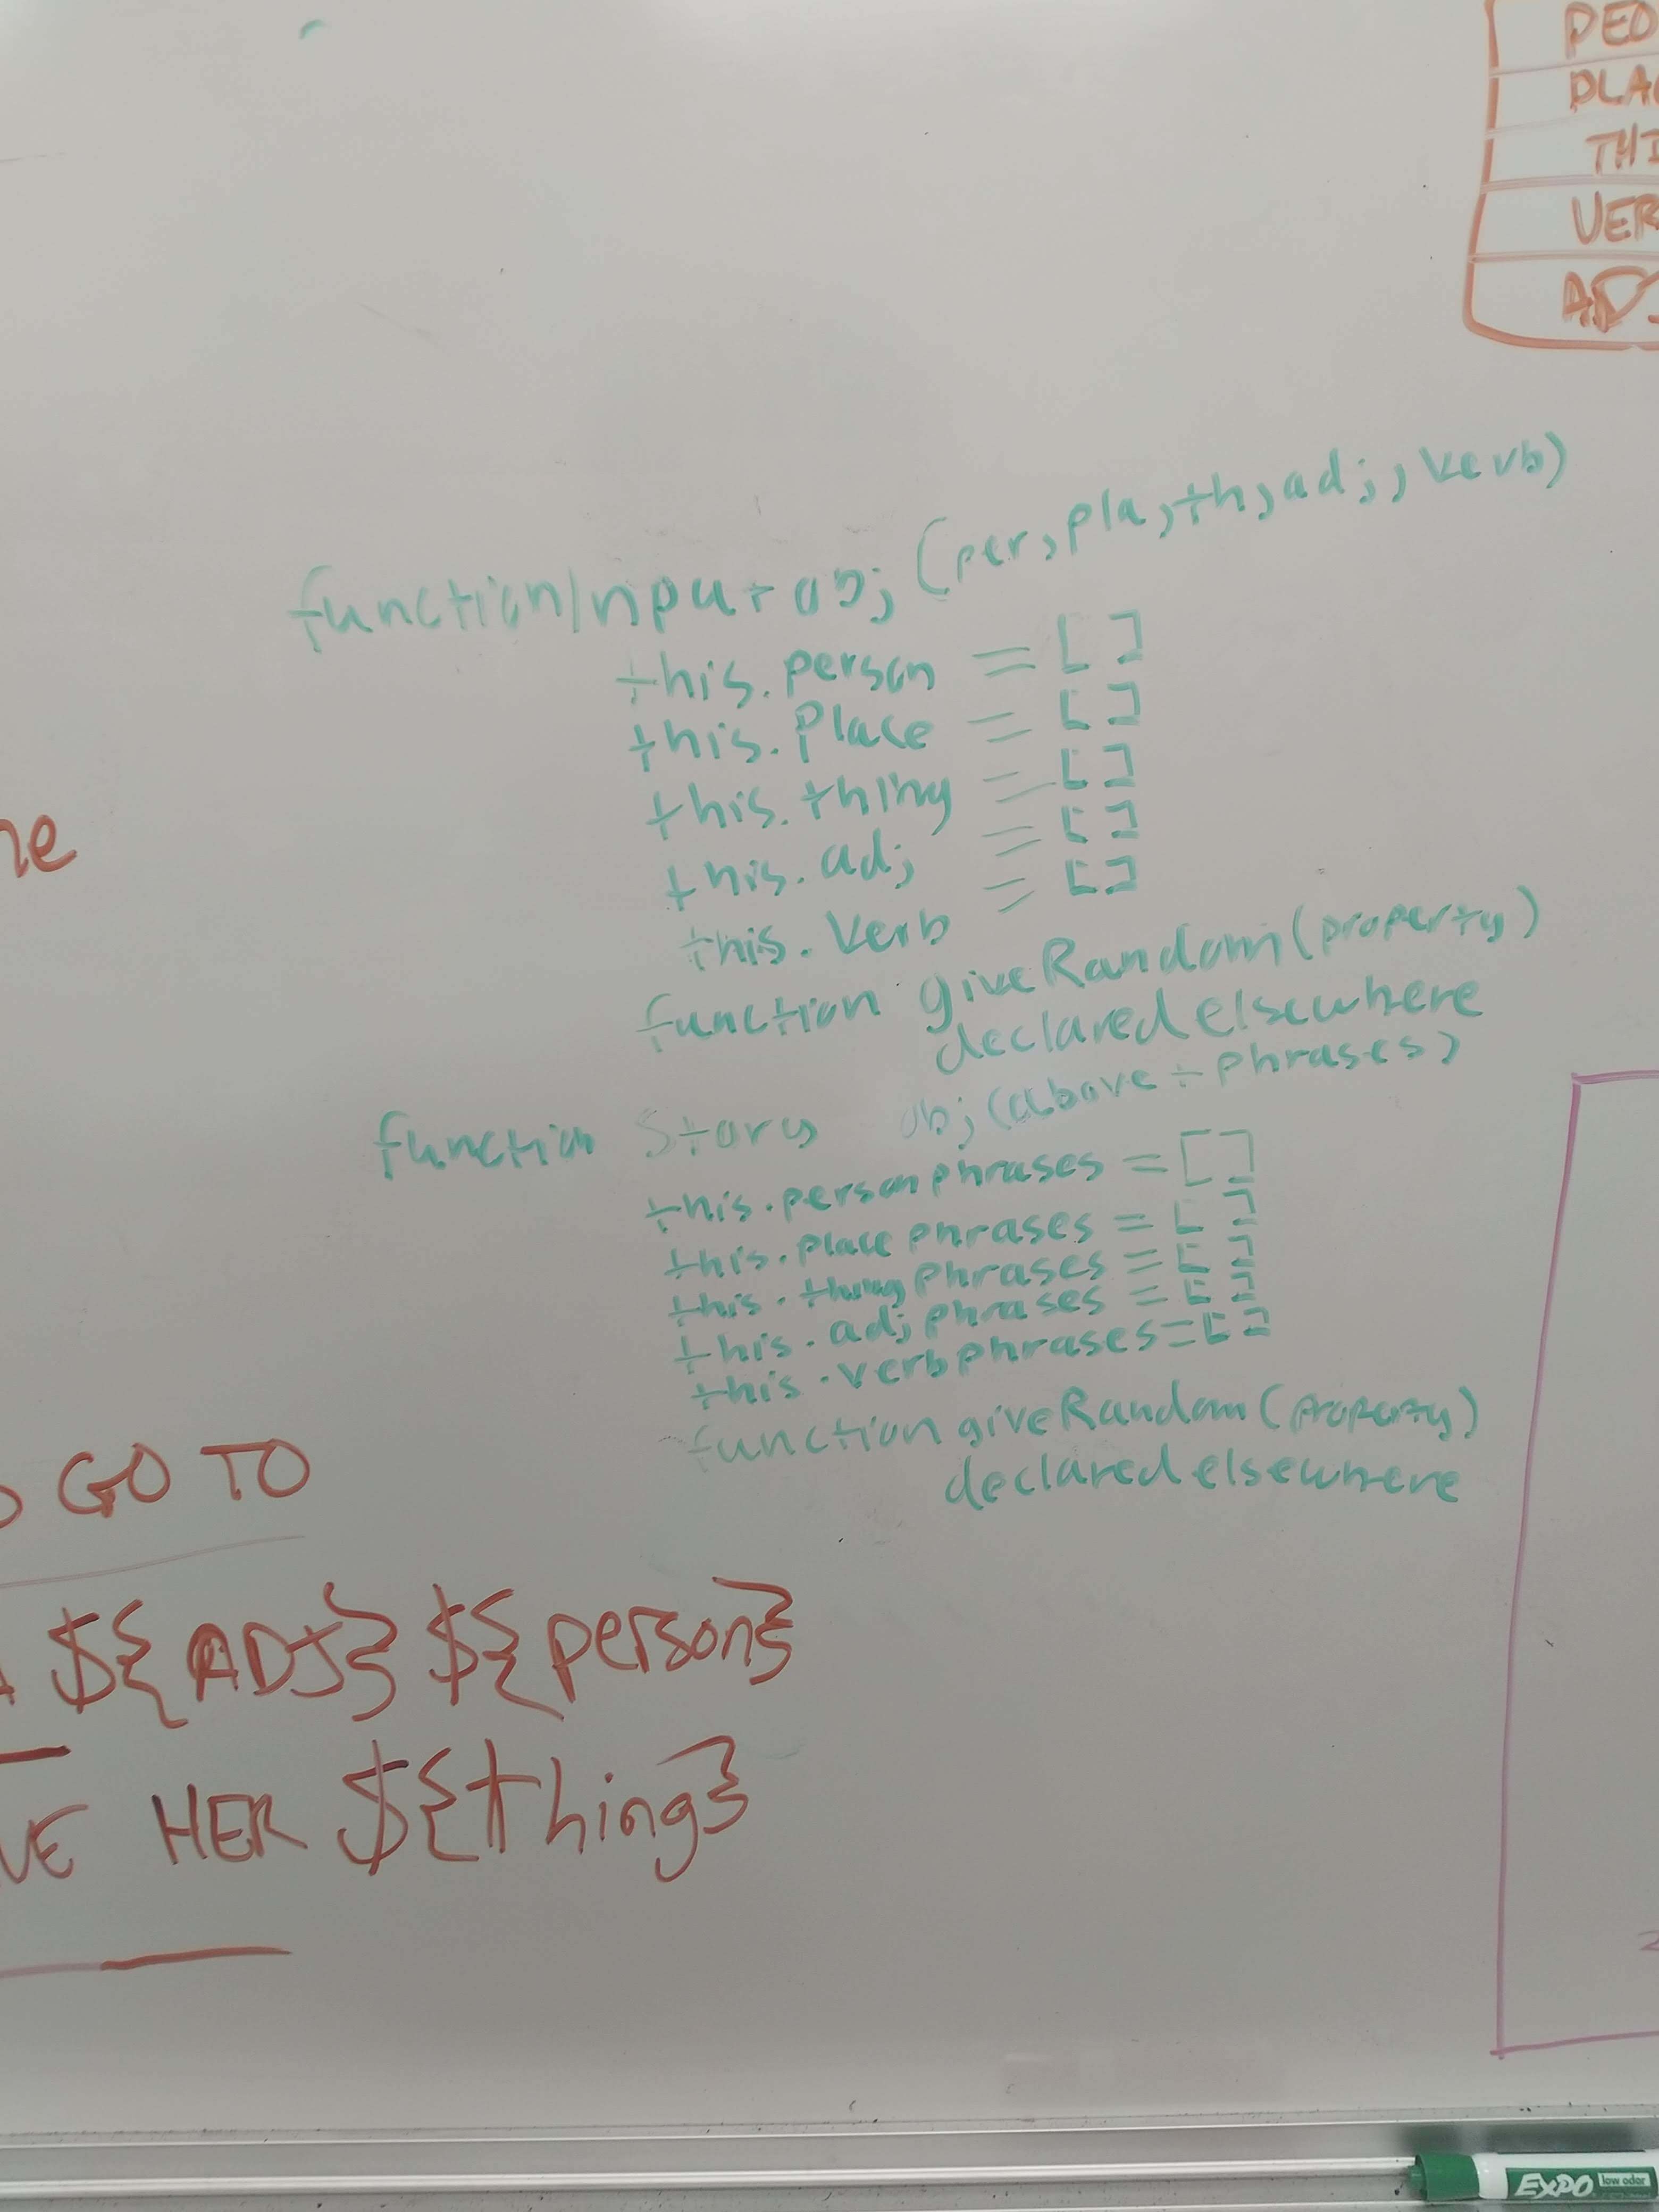 PEO
PLAC
THI
VER
ADJ
function Input obj (per, pla, th, adj, verb)
this.person = [ ]
this.place = [ ]
this.thing = [ ]
this.adj = [ ]
this.verb = [ ]
function giveRandom(property)
declared elsewhere
function Story obj (above + phrases)
this.personphrases = [ ]
this.placephrases = [ ]
this.thingphrases = [ ]
this.adjphrases = [ ]
this.verbphrases = [ ]
function giveRandom(property)
declared elsewhere
ne
GO TO
A ${ADJ} ${person}
VE HER ${thing}
EXPO low odor